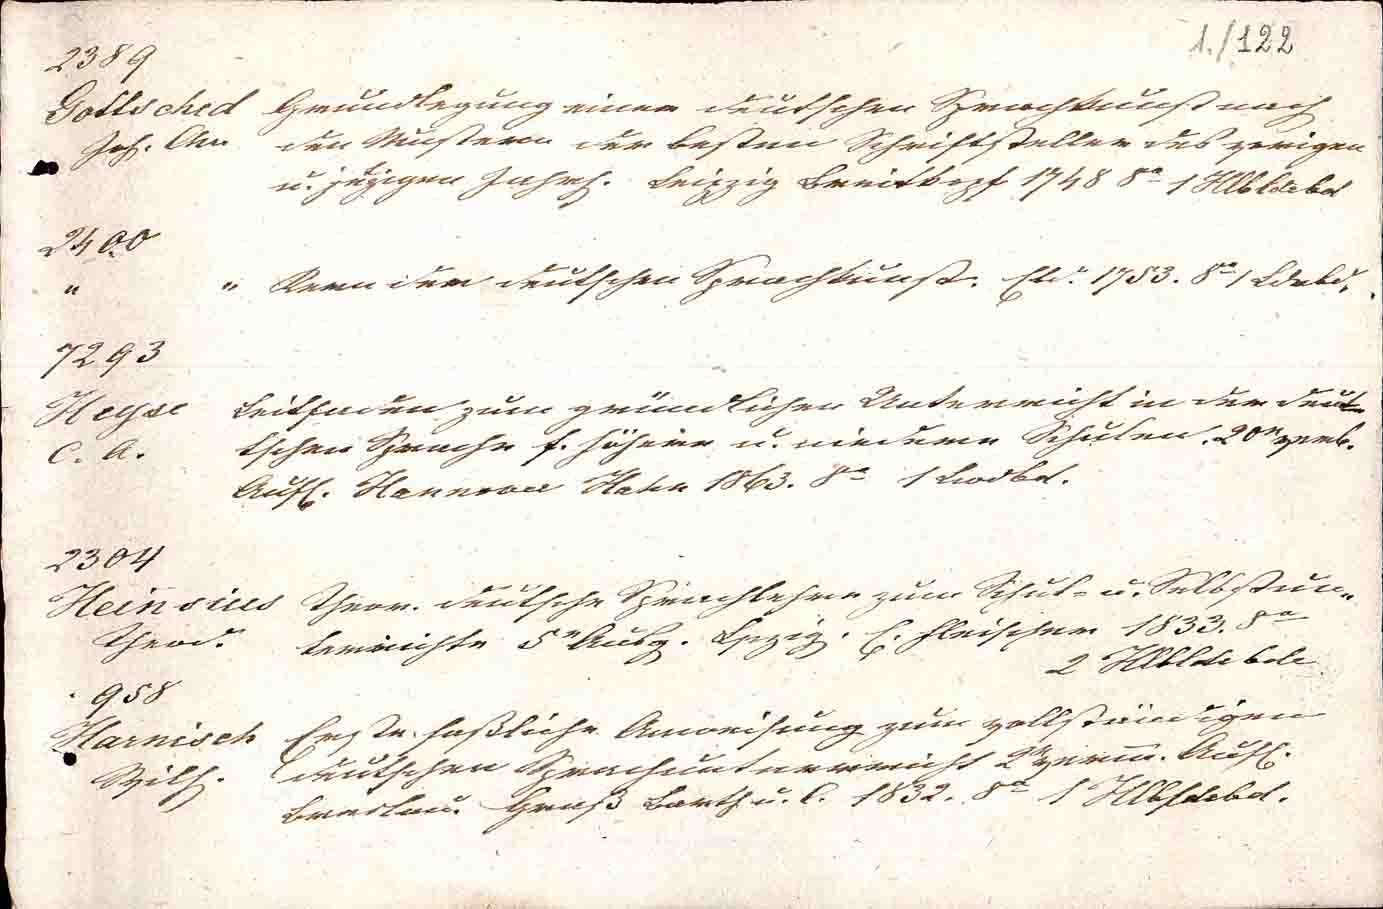 1./122
2389
Gottsched Grundlegung einer deutschen Sprachkunst nach
Joh. Chr. den Mustern der besten Schriftsteller des vorigen
u. jetzigen Jahrh. Leipzig Breitkopf 1748 8° 1 Hlbldrbd
2400
" " Kern der deutschen Sprachkunst. Ebd. 1753. 8° 1 Ldrbd.
7293
Heyse Leitfaden zum gründlichen Unterricht in der deut-
C. A. tschen Sprache f. höhere u. niedere Schulen. 20e verb.
Aufl. Hannover Hahn 1863. 8° 1 Lwdbd.
2304
Heinsius Theor. deutsche Sprachlehre zum Schul- u. Selbstun-
Theod. terrichte 5e Ausg. Lpzig. E. Fleischer 1833. 8°
2 Hlbldrbde
958
Harnisch Erste faßliche Anweisung zum vollständigen
Wilh. deutschen Sprachunterricht 2e verm. Aufl.
Breslau. Graß Barth u. C. 1832. 8° 1 Hlbldrbd.